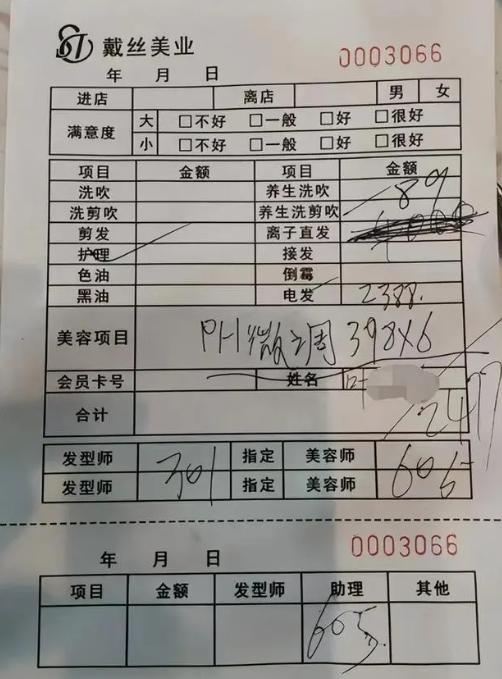 戴丝美业 0003066
年 月 日
进店 离店 男 女
满意度 大 □不好 □一般 □好 □很好
小 □不好 □一般 □好 □很好
项目 金额 项目 金额
洗吹 养生洗吹 89
洗剪吹 养生洗剪吹
剪发 离子直发
护理 接发
色油 倒霉
黑油 电发 2388.
美容项目 PH微调 398X6
会员卡号 姓名
合计 2477
发型师 301 指定 美容师 605
发型师 指定 美容师
年 月 日 0003066
项目 金额 发型师 助理 其他
605